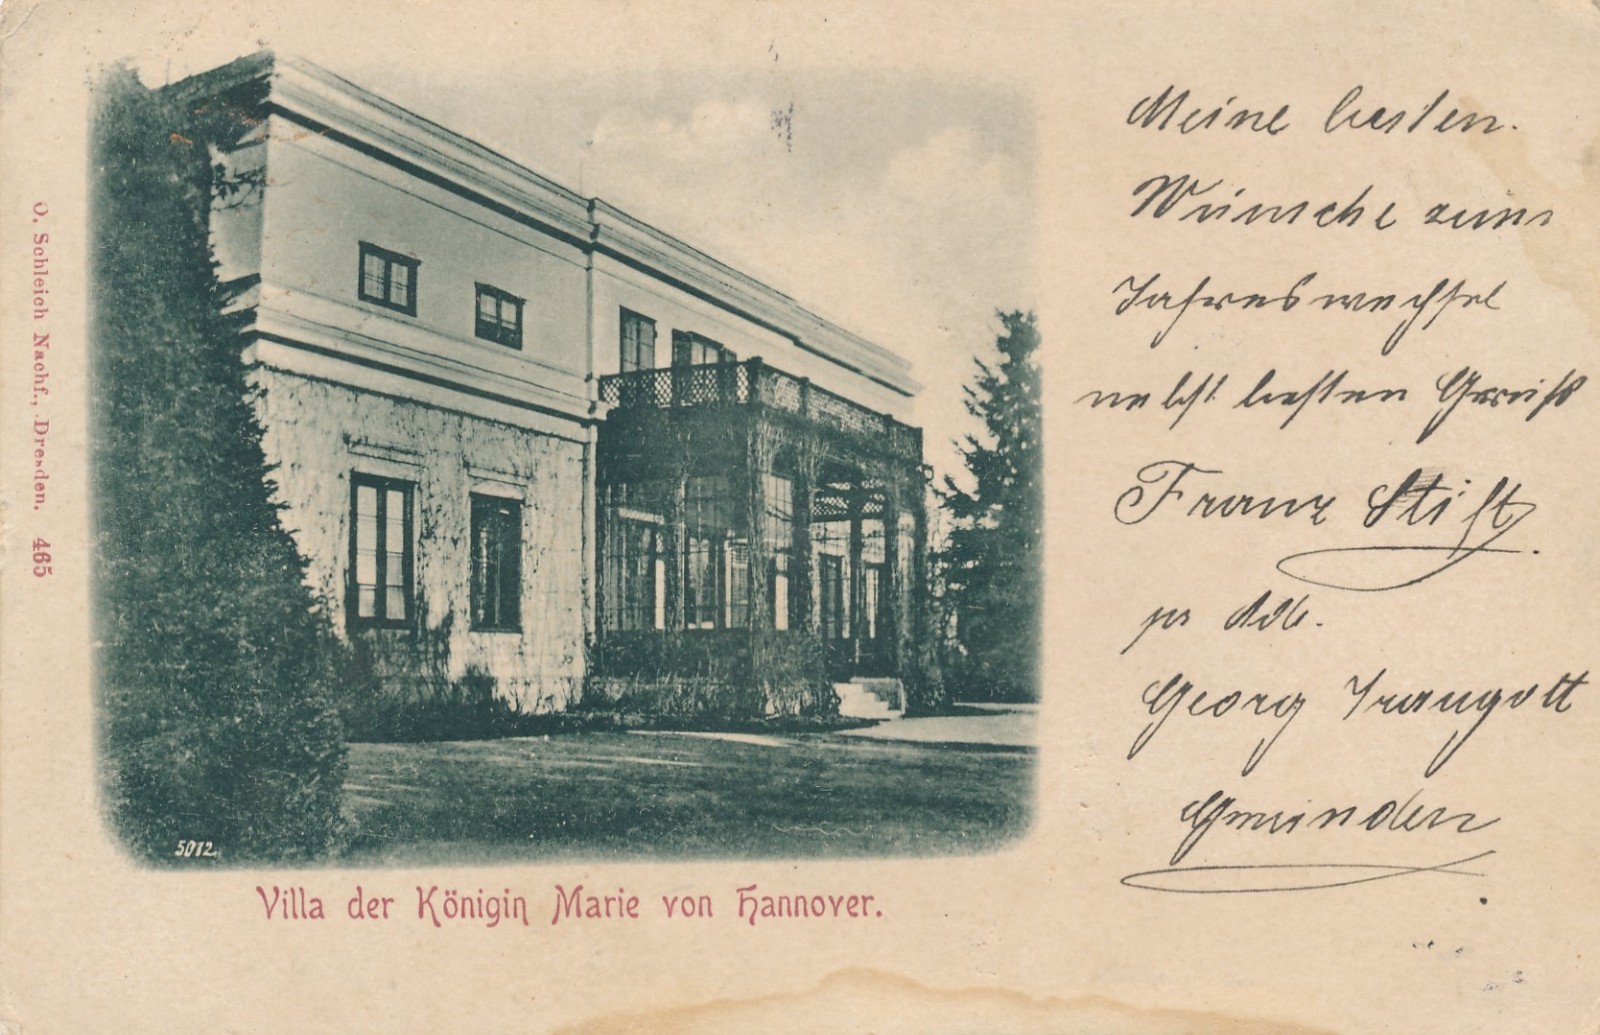 O. Schleich Nachf., Dresden. 465
5012
Villa der Königin Marie von Hannover.
Meine besten
Wünsche zum
Jahreswechsel
nebst besten Gruß
Franz Stift
pr Adr.
Georg Traugott
Gmunden